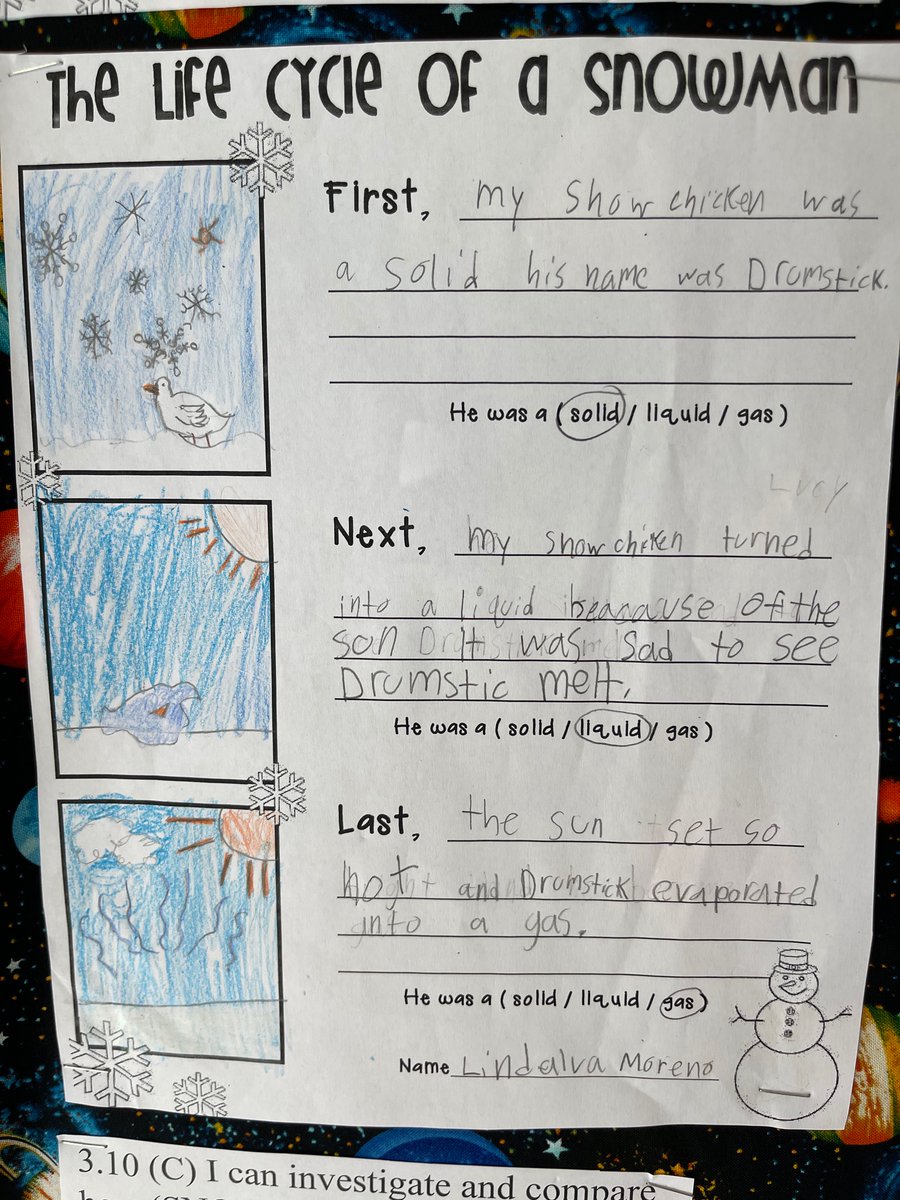 The Life Cycle of a Snowman
First, my Snow chicken was
a solid his name was Drumstick.
He was a (solid / liquid / gas)
Lucy
Next, my snow chicken turned
into a liquid beacause of the
sun It was Sad to see
Drumstic melt.
He was a (solid / liquid / gas)
Last, the sun set so
hot and Drumstick evaporated
into a gas.
He was a (solid / liquid / gas)
Name Lindalva Moreno
3.10 (C) I can investigate and compare